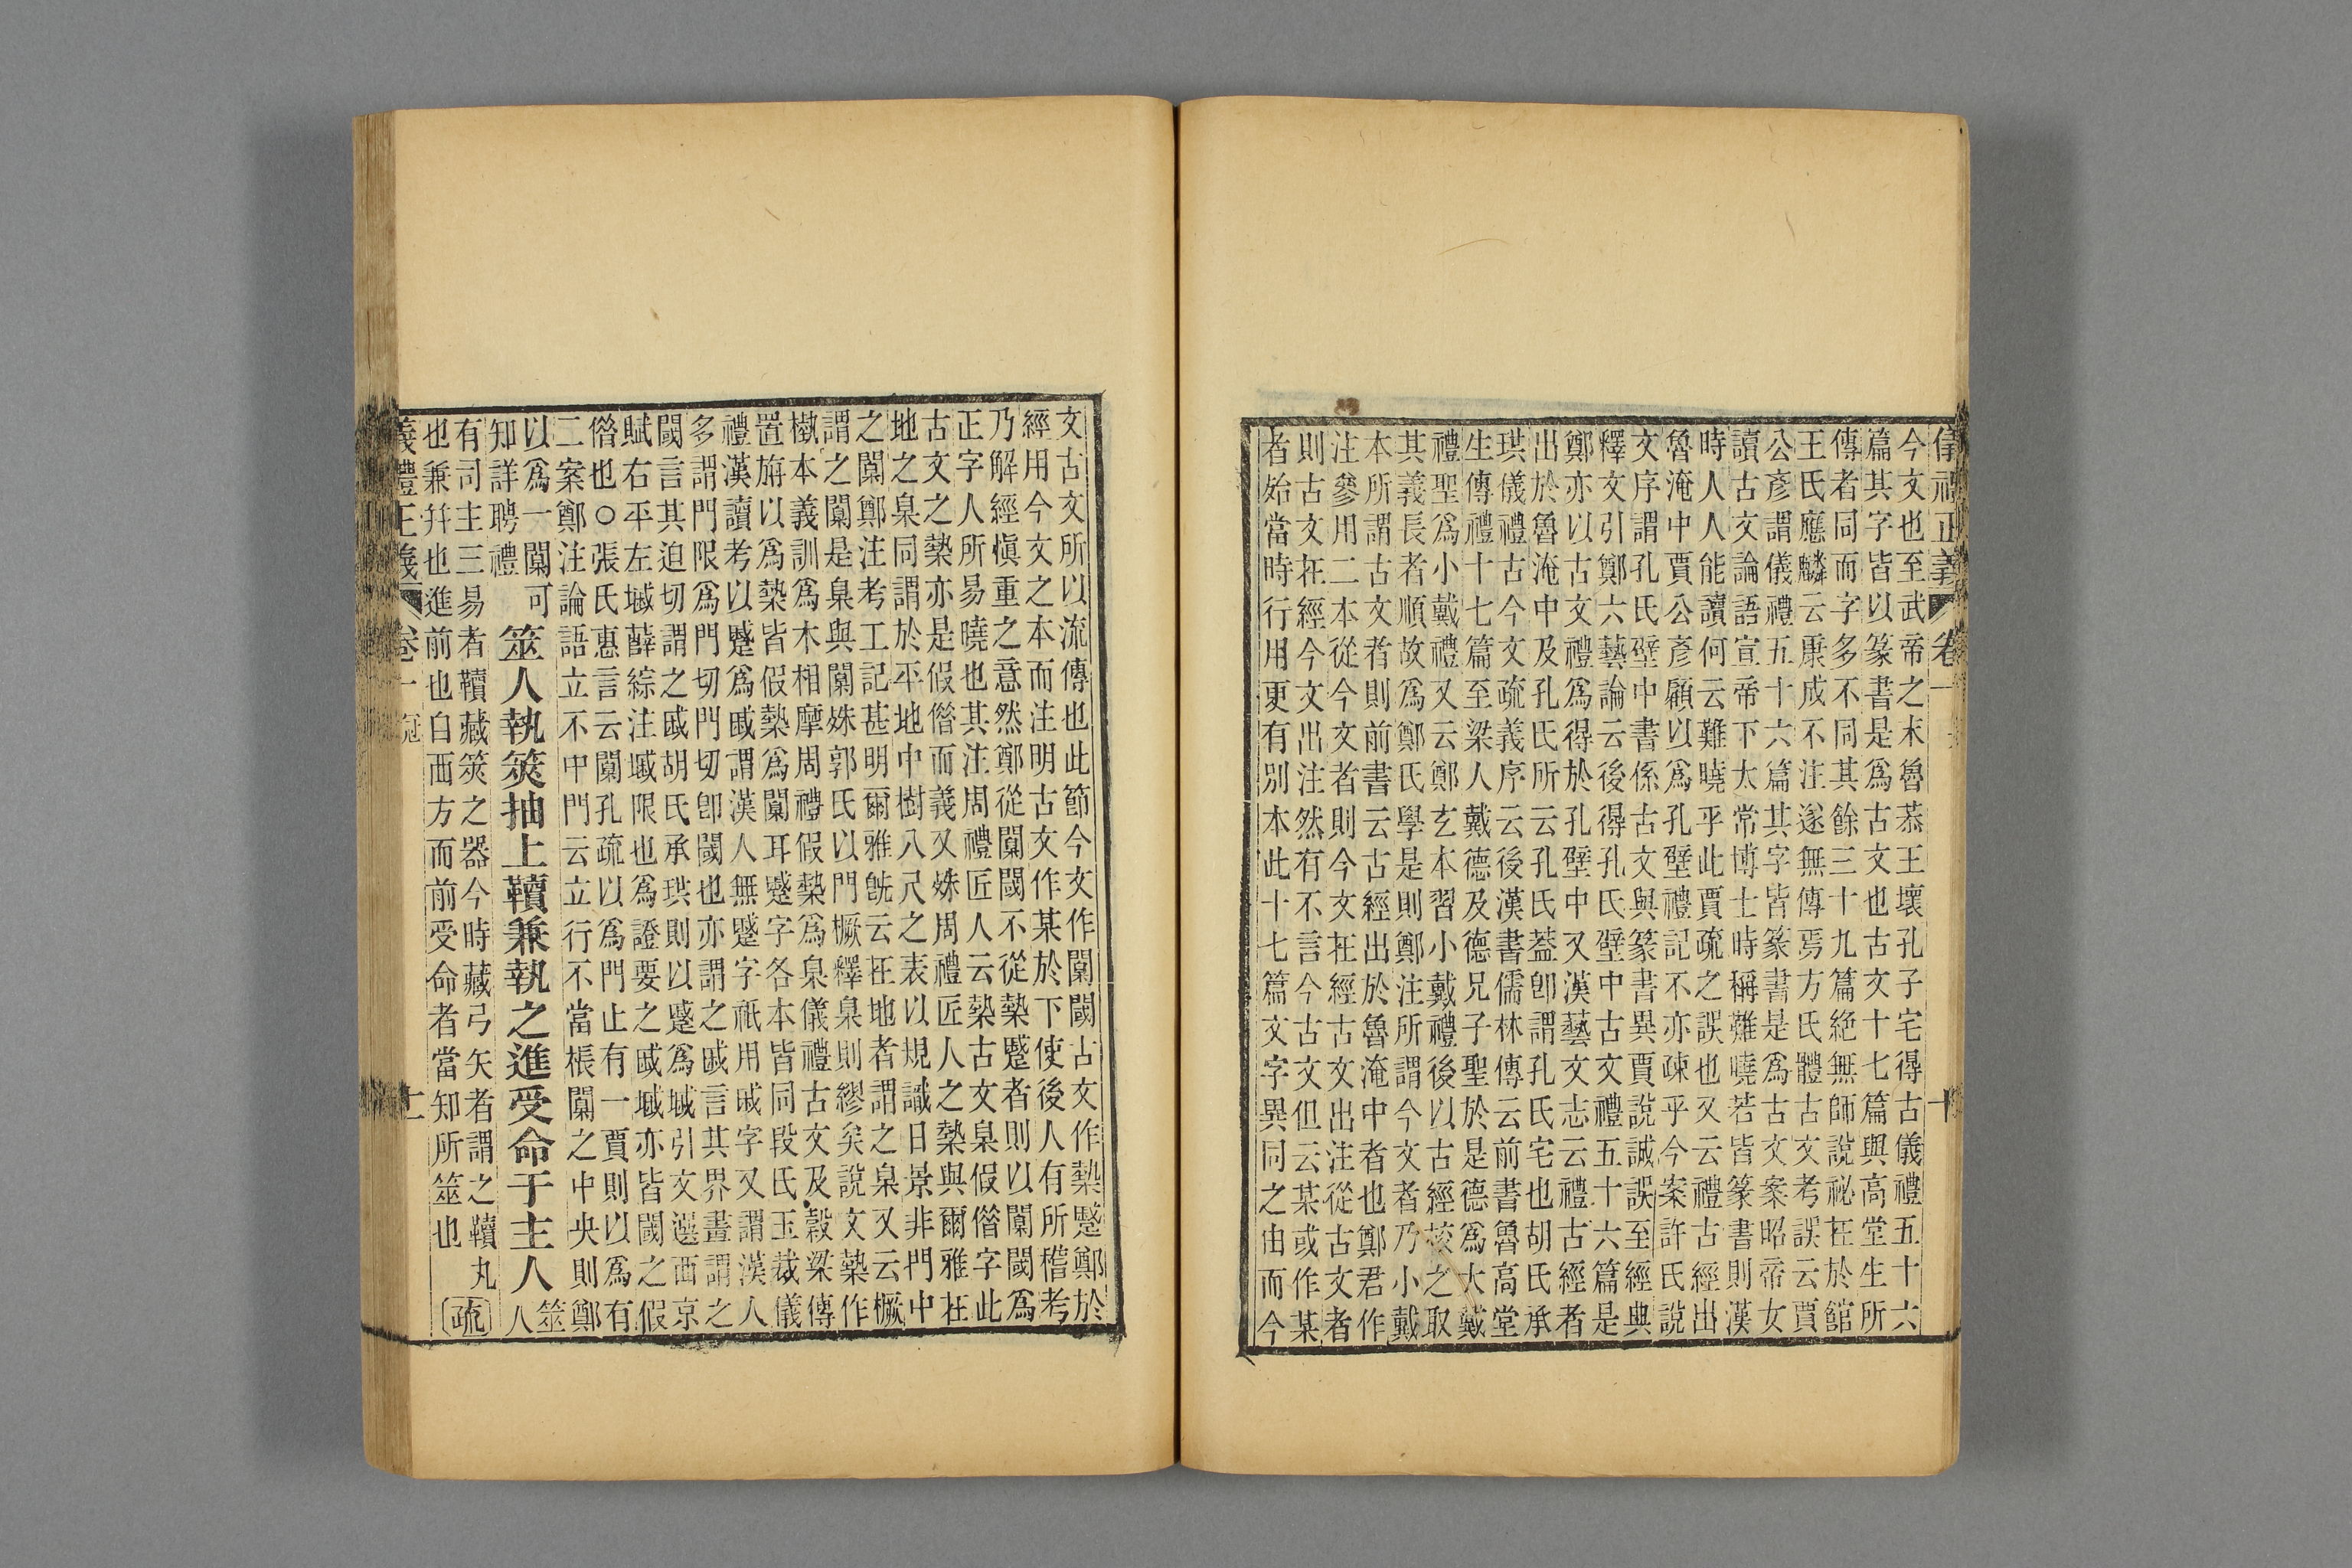 儀禮正義 卷一 十
今文也至武帝之末魯恭王壞孔子宅得古儀禮五十六
篇其字皆以篆書是爲古文也古文十七篇與高堂生所
傳者同而字多不同其餘三十九篇絶無師說祕在於館
王氏應麟云康成不注遂無傳焉方氏體古文考誤云賈
公彥謂儀禮五十六篇其字皆篆書是爲古文案昭帝女
讀古文論語宣帝下太常博士時稱難曉若皆篆書則漢
時人人能讀何云難曉乎此賈疏之誤也又云禮古經出
魯淹中賈公彥顧以爲孔壁禮記不亦疎乎今案許氏說
文序謂孔氏壁中書係古文與篆書異賈說誠誤至經典
釋文引鄭六藝論云後得孔氏壁中古文禮五十六篇是
鄭亦以古文禮爲得於孔壁中又漢藝文志云禮古經者
出於魯淹中及孔氏所云孔氏蓋卽謂孔氏宅也胡氏承
珙儀禮古今文疏義序云後漢書儒林傳云前書魯高堂
生傳禮十七篇至梁人戴德及德兄子聖於是德爲大戴
禮聖爲小戴禮又云鄭玄本習小戴禮後以古經校之取
其義長者順故爲鄭氏學是則鄭注所謂今文者乃小戴
本所謂古文者則前書云古經出於魯淹中者也鄭君作
注參用二本從今文者則今文在經古文出注從古文者
則古文在經今文出注然有不言今古文但云某或作某
者始當時行用更有別本此十七篇文字異同之由而今
文古文所以流傳也此節今文作闑閾古文作槷蹙鄭於
經用今文之本而注明古文作某於下使後人有所稽考
乃解經愼重之意然鄭從闑閾不從槷蹙者則以闑閾爲
正字人所易曉也其注周禮匠人云槷古文臬假借字此
古文之槷亦是假借而義又殊周禮匠人之槷與爾雅在
地之臬同謂於平地中樹八尺之表以規識日景非門中
之闑鄭注考工記甚明爾雅旣云在地者謂之臬又云橛
謂之闑是臬與闑殊郭氏以門橛釋臬則繆矣說文槷作
槸本義訓爲木相摩周禮假槷爲臬儀禮古文及穀梁傳
置旃以爲槷皆假槷爲闑耳蹙字各本皆同段氏玉裁儀
禮漢讀考以蹙爲戚謂漢人無蹙字祇用戚字又謂漢人
多謂門限爲門切門切卽閾也亦謂之戚言其界畫謂之
閾言其迫切謂之戚胡氏承珙則以蹙爲墄引文選西京
賦右平左墄薛綜注墄限也爲證要之戚墄亦皆閾之假
借也○張氏惠言云闑孔疏以爲門止有一賈則以爲有
二案鄭注論語立不中門云立行不當棖闑之中央則鄭
以爲一闑可
知詳聘禮
筮人執筴抽上韇兼執之進受命于主人 筮人
有司主三易者韇藏筴之器今時藏弓矢者謂之韇丸
也兼幷也進前也自西方而前受命者當知所筮也 疏
義禮正義 卷一 冠 十一